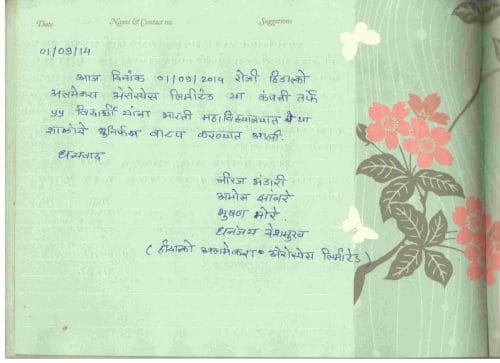 Date Name & Contact no. Suggestions
01/09/14
आज दिनांक 01/09/2014 रोजी हिंडाल्को
अलमेक्स ऐरोस्पेस लिमिटेड या कंपनी तर्फे
५५ विद्यार्थी यांना भारती महाविद्यालयात या
शाळेचे युनिफॉर्म वाटप करण्यात आली.
धन्यवाद
नीरज भंडारी
अमोल सांगरे
भुषण मोरे.
धनंजय देशमुख
( हिंडाल्को अलमेक्स ऐरोस्पेस लिमिटेड )